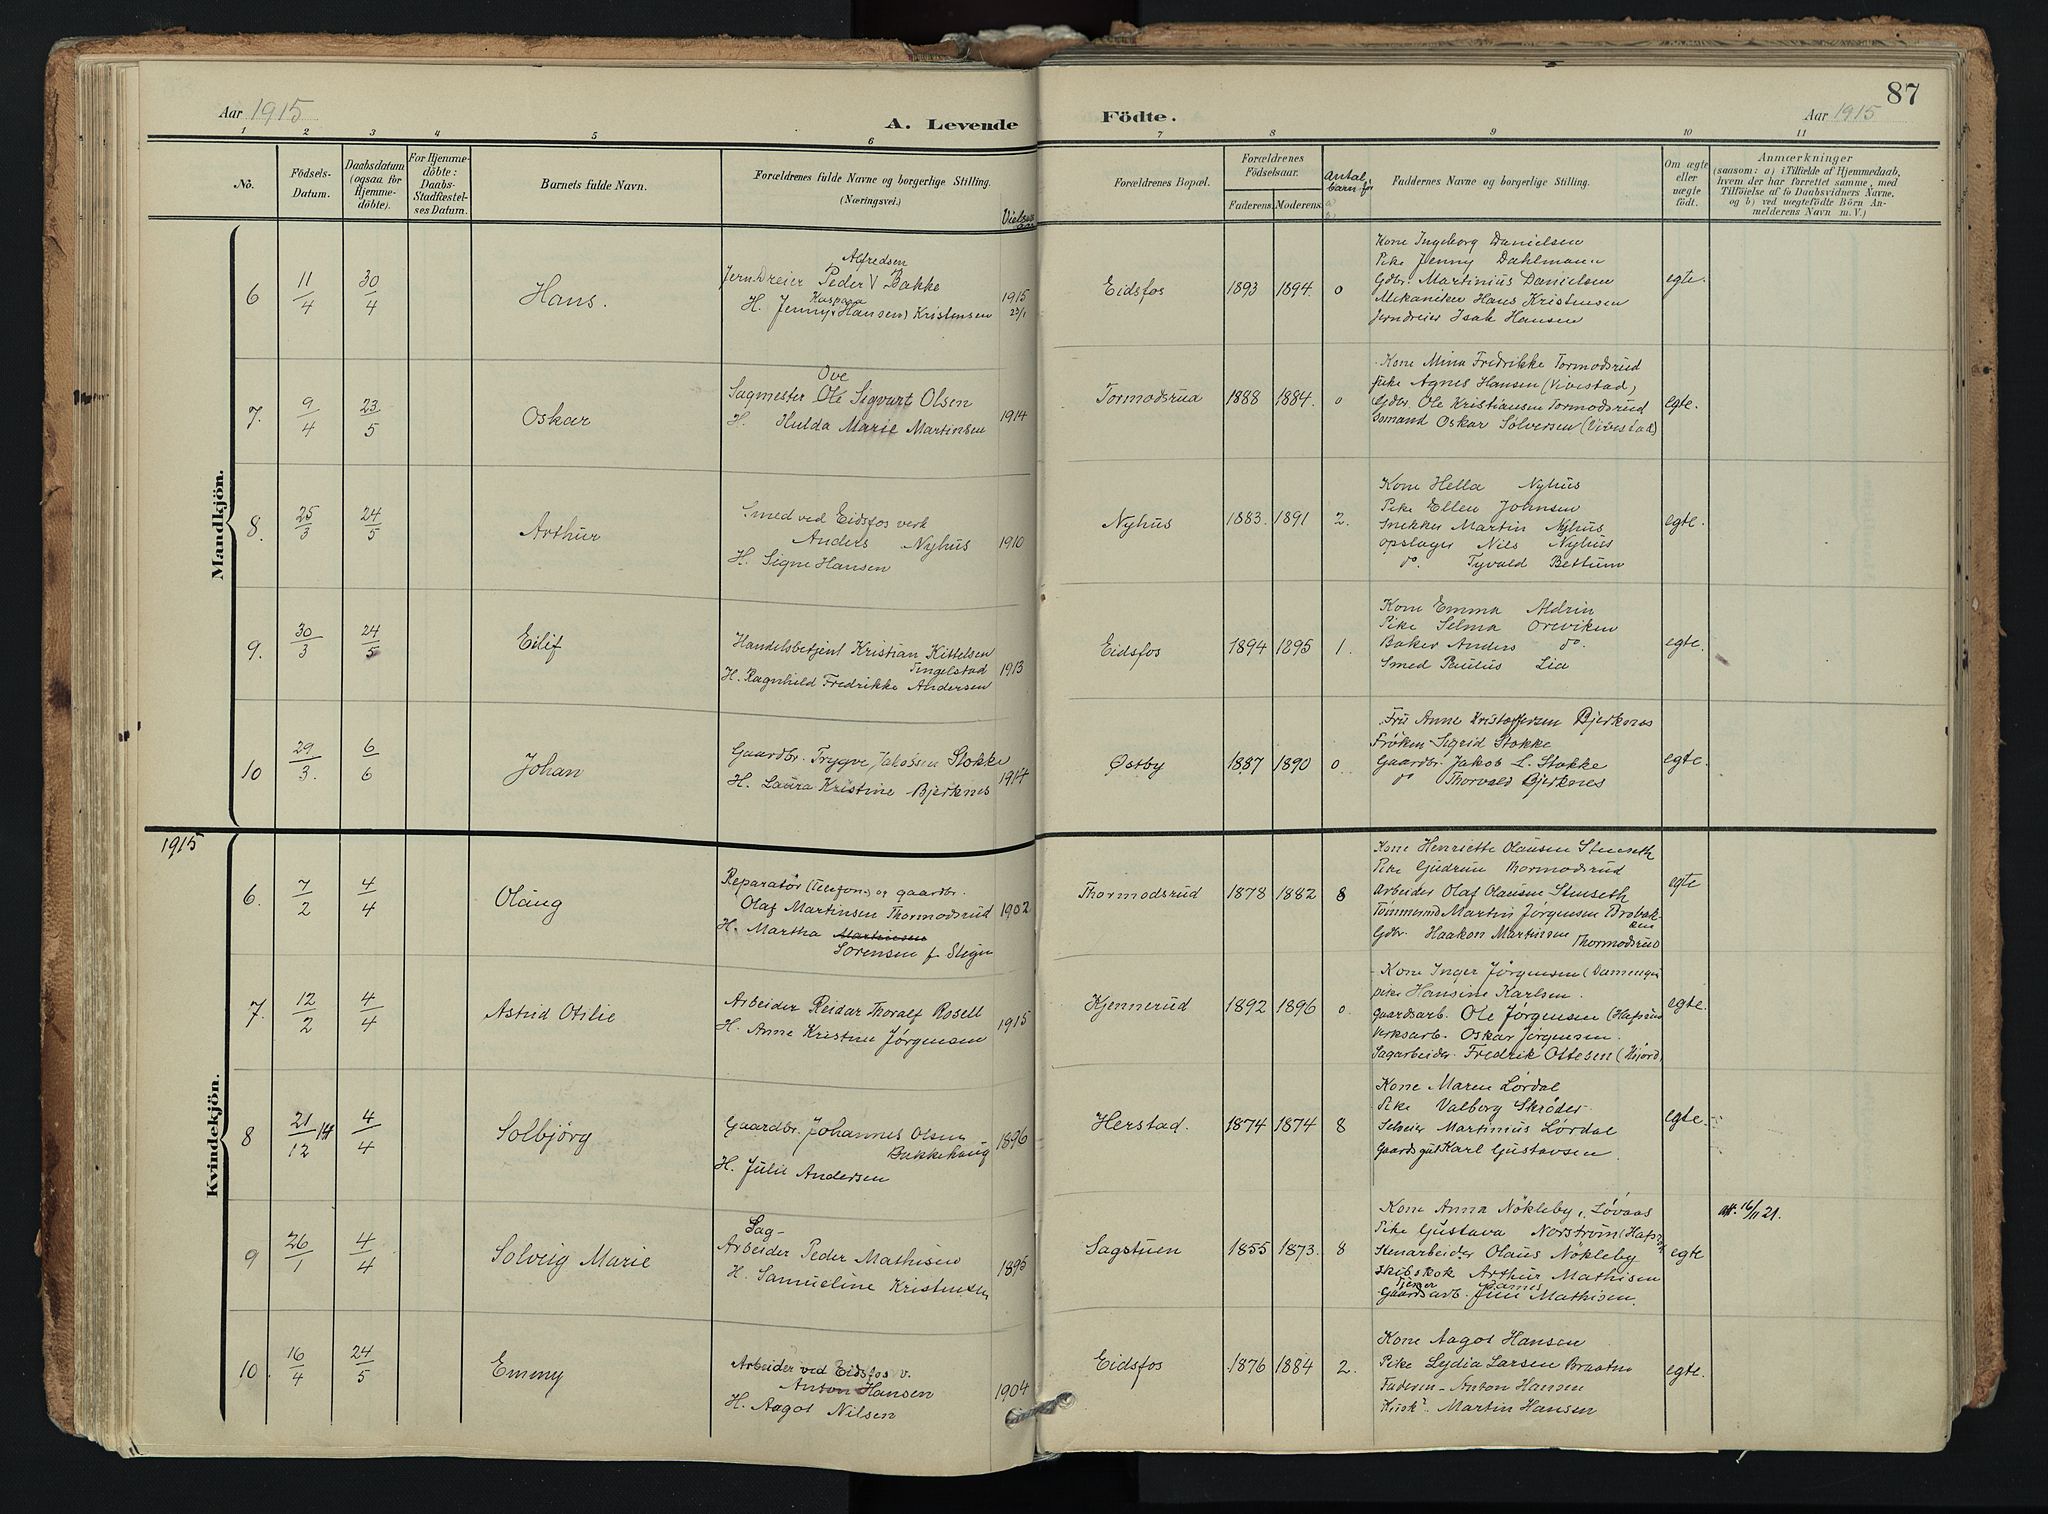 87
Aar 1915
A. Levende Födte.
Aar 1915
1 2 3 4 5 6 7 8 9 10 11
No.
Födsels-
Datum.
Daabsdatum
(ogsaa for
Hjemme-
döbte).
For Hjemme-
döbte:
Daabs-
Stadfæstel-
ses Datum.
Barnets fulde Navn.
Forældrenes fulde Navne og borgerlige Stilling.
(Næringsvei.)
Vielses
aar
Forældrenes Bopæl.
Forældrenes
Födselsaar.
Faderens. Moderens.
Antal
barn før
Faddernes Navne og borgerlige Stilling.
Om ægte
eller
uægte
födt.
Anmærkninger
(saasom: a) i Tilfælde af Hjemmedaab,
hvem der har forrettet samme, med
Tilföielse af to Daabsvidners Navne,
og b) ved uægtefödte Börn An-
melderens Navn m. V.)
Mandkjön.
6 11/4 30/4 Hans.
Alfredsen
Jerndreier Peder V Bakke
Kaspara
H. Jenny (Hansen) Kristensen 1915 23/1
Eidsfos 1893 1894. 0
Kone Ingeborg Danielsen
Pike Jenny Dahlmann
Gdbr. Martinius Danielsen
Mekaniker Hans Kristensen
Jerndreier Isak Hansen
egte.
7. 9/4 23/5 Oskar
Ove
Sagmester Ole Sigvart Olsen
H. Hulda Marie Martinsen 1914
Tormodsrud 1888 1884. 0
Kone Mina Fredrikke Tormodsrud
pike Agnes Hansen (Vivestad)
Gdbr. Ole Kristiansen Tormodsrud
Oskar Solversen (Vivestad)
egte.
8. 25/3 24/5 Arthur
Smed ved Eidsfos verk
Anders Nyhus 1910
H. Signe Hansen
Nyhus 1883. 1891 2.
Kone Hella Nyhus
Pike Ellen Johnsen
Snekker Martin Nyhus
opslager Nils Nyhus
do. Tyvald Bettum
egte.
9. 30/3 24/5 Eilif
Handelsbetjent Kristian Kittelsen
Tingelstad 1913
H. Ragnhild Fredrikke Andersen
Eidsfos 1894 1895 1.
Kone Emma Aldrin
Pike Selma Oreviken
Baker Anders do.
Smed Paulus Lia
egte.
10 29/3. 6/6 Johan
Gaardbr. Trygve Jakobsen Stokke
H. Laura Kristine Bjerknes 1914
Østby 1887 1890 0
Fru Anne Kristoffersen Bjerknes
Frøken Sigrid Stokke
Gaardbr. Jakob L. Stokke
do Thorvald Bjerknes
egte.
1915
Kvindekjön.
6. 7/2 4/4 Olaug
Reparatør (Telefon) og gaardbr.
Olaf Martinsen Thormodsrud 1902
H. Martha Martinsen
Sorensen f.
Thormodsrud 1878 1882 8
Kone Henriette Olausen Stenseth
Pike Gudrun Thormodsrud
Arbeider Olaf Olausen Stenseth
Tømmermd Martin Jørgensen Brobak-
ken
Gdbr. Haakon Martinsen Thormodsrud
egte
7. 12/2 4/4 Astrid Otilie
Arbeider Reidar Thoralf Rosell
H. Anne Kristine Jørgensen 1915
Kjennerud 1892 1896 0.
Kone Inger Jørgensen
pike Hansine Karlsen.
Gaardsarb. Ole Jørgensen
Verksarb. Oskar Jørgensen.
Sagarbeider. Fredrik Ottesen
egte.
8 21/12 14 4/4 Solbjørg
Gaardbr. Johannes Olsen
Bakkehaug 1896
H. Julie Andersen
Herstad. 1874 1874 8
Kone Maren Lørdal
Pike Valborg Skrøder
Selveier Martinius Lørdal
Gaardsgut Karl Gustavsen.
egte.
9 26/1 4/4 Solveig Marie
Sag-
Arbeider Peder Mathisen
H. Samueline Kristensen 1895
Sagstuen 1855 1873. 8
Kone Anna Nökleby, Løvaas
Pike Gustava Norstrøm
Stenarbeider Olaus Nökleby
Skibskok Arthur Mathisen
Gaardsarb. Mathisen.
egte
att. 16/11 21.
10. 16/4 24/5 Emmy
Arbeider ved Eidsfos v.
Anton Hansen 1904
H. Aagot Nilsen
Eidsfos 1876 1884 2.
Kone Aagot Hansen
Pike Lydia Larsen Braaten
Faderen - Anton Hansen
Kusk Martin Hansen
egte.